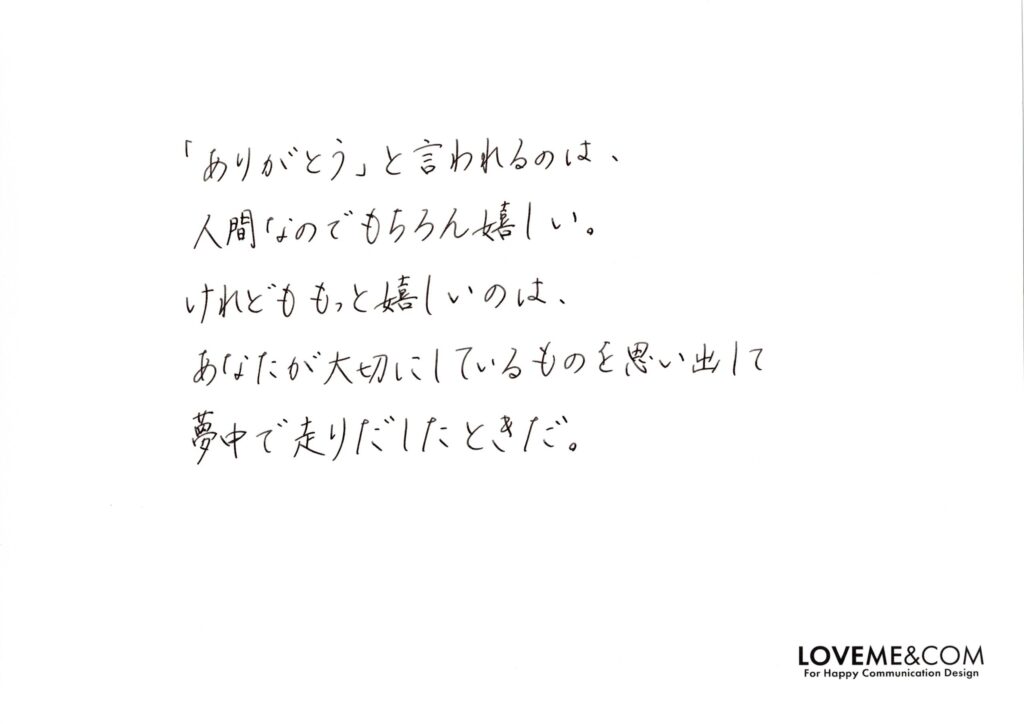 「ありがとう」と言われるのは、
人間なのでもちろん嬉しい。
けれどももっと嬉しいのは、
あなたが大切にしているものを思い出して
夢中で走りだしたときだ。
LOVEME&COM
For Happy Communication Design